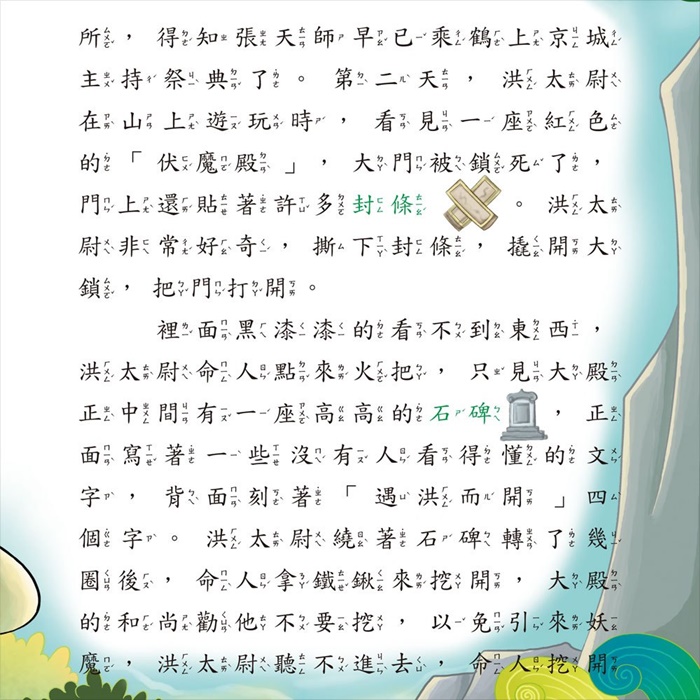 所，得知張天師早已乘鶴上京城
主持祭典了。第二天，洪太尉
在山上遊玩時，看見一座紅色
的「伏魔殿」，大門被鎖死了，
門上還貼著許多封條。洪太
尉非常好奇，撕下封條，撬開大
鎖，把門打開。
裡面黑漆漆的看不到東西，
洪太尉命人點來火把，只見大殿
正中間有一座高高的石碑，正
面寫著一些沒有人看得懂的文
字，背面刻著「遇洪而開」四
個字。洪太尉繞著石碑轉了幾
圈後，命人拿鐵鍬來挖開，大殿
的和尚勸他不要挖，以免引來妖
魔，洪太尉聽不進去，命人挖開